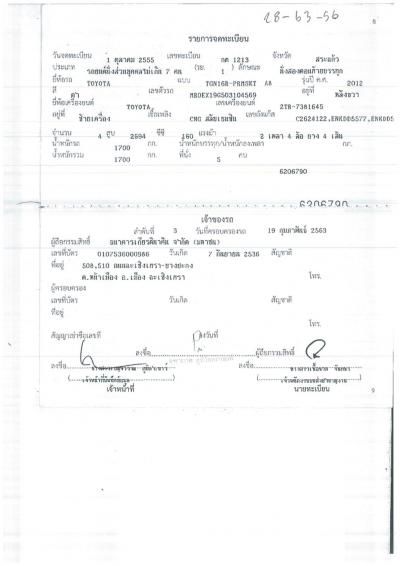 28-63-56
8
รายการจดทะเบียน
วันจดทะเบียน 1 ตุลาคม 2555 เลขทะเบียน กต 1213 จังหวัด สระแก้ว
ประเภท รถยนต์นั่งส่วนบุคคลไม่เกิน 7 คน (รย. 1 ) ลักษณะ นั่งสองตอนท้ายบรรทุก
ยี่ห้อรถ TOYOTA แบบ TGN16R-PRMSKT A8 รุ่นปี ค.ศ. 2012
สี ดำ เลขตัวรถ MR0EX19G503104569 อยู่ที่ หลังขวา
ยี่ห้อเครื่องยนต์ TOYOTA เลขเครื่องยนต์ 2TR-7381645
อยู่ที่ ซ้ายเครื่อง เชื้อเพลิง CNG เลขถังแก๊ส C2624122,ENK005577,ENK005
จำนวน 4 สูบ 2694 ซีซี 160 แรงม้า 2 เพลา 4 ล้อ ยาง 4 เส้น
น้ำหนักรถ 1700 กก. น้ำหนักบรรทุก/น้ำหนักลงเพลา กก.
น้ำหนักรวม 1700 กก. ที่นั่ง 5 คน
6206790
6206790
เจ้าของรถ
ลำดับที่ 3 วันที่ครอบครองรถ 19 กุมภาพันธ์ 2563
ผู้ถือกรรมสิทธิ์ ธนาคารเกียรตินาคิน จำกัด (มหาชน)
เลขที่บัตร 0107536000986 วันเกิด 7 กันยายน 2536 สัญชาติ
ที่อยู่ 508,510 ถนนฉะเชิงเทรา-บางปะกง
ต.หน้าเมือง อ.เมือง ฉะเชิงเทรา โทร.
ผู้ครอบครอง
เลขที่บัตร วันเกิด สัญชาติ
ที่อยู่
โทร.
สัญญาเช่าซื้อเลขที่ ลงวันที่
ลงชื่อ ผู้ถือกรรมสิทธิ์
ลงชื่อ ลงชื่อ
เจ้าหน้าที่ นายทะเบียน
9